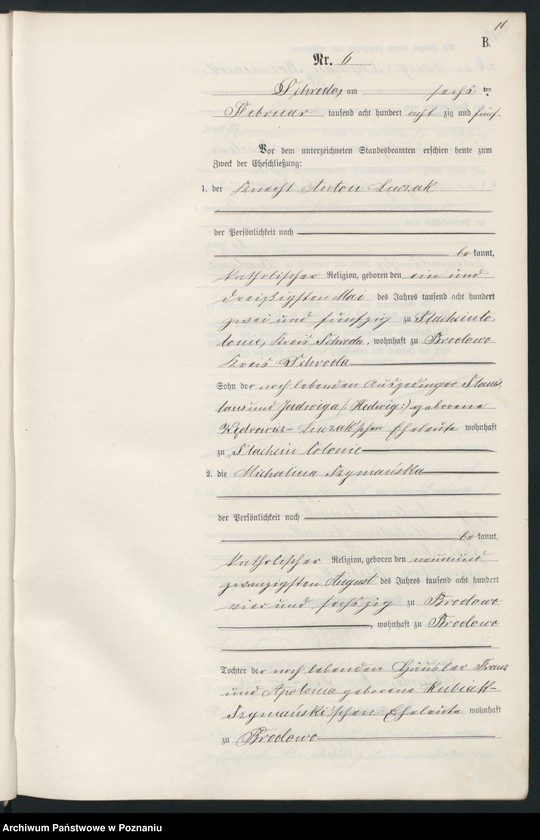 11
B.
Nr. 6
Schroda, am sechs ten
Februar tausend acht hundert acht zig und fünf.
Vor dem unterzeichneten Standesbeamten erschien heute zum
Zweck der Eheschließung:
1. der Knecht Anton Luczak
der Persönlichkeit nach
be kannt,
katholischer Religion, geboren den ein und
dreißigsten Mai des Jahres tausend acht hundert
zwei und fünfzig zu
lonie, Kreis Schroda, wohnhaft zu Brodowo
Kreis Schroda
Sohn der noch lebenden Ausgedinger Stanis
laus und Jadwiga (: Hedwig :) geborene
Luczak'schen Eheleute wohnhaft
zu Colonie
2. die Michalina Szymańska
der Persönlichkeit nach
be kannt,
katholischer Religion, geboren den neunund
zwanzigsten August des Jahres tausend acht hundert
vier und sechszig zu Brodowo
, wohnhaft zu Brodowo
Tochter der noch lebenden Häusler Franz
und Apolonia geborene Kubiak-
Szymański'schen Eheleute wohnhaft
zu Brodowo
Archiwum Państwowe w Poznaniu